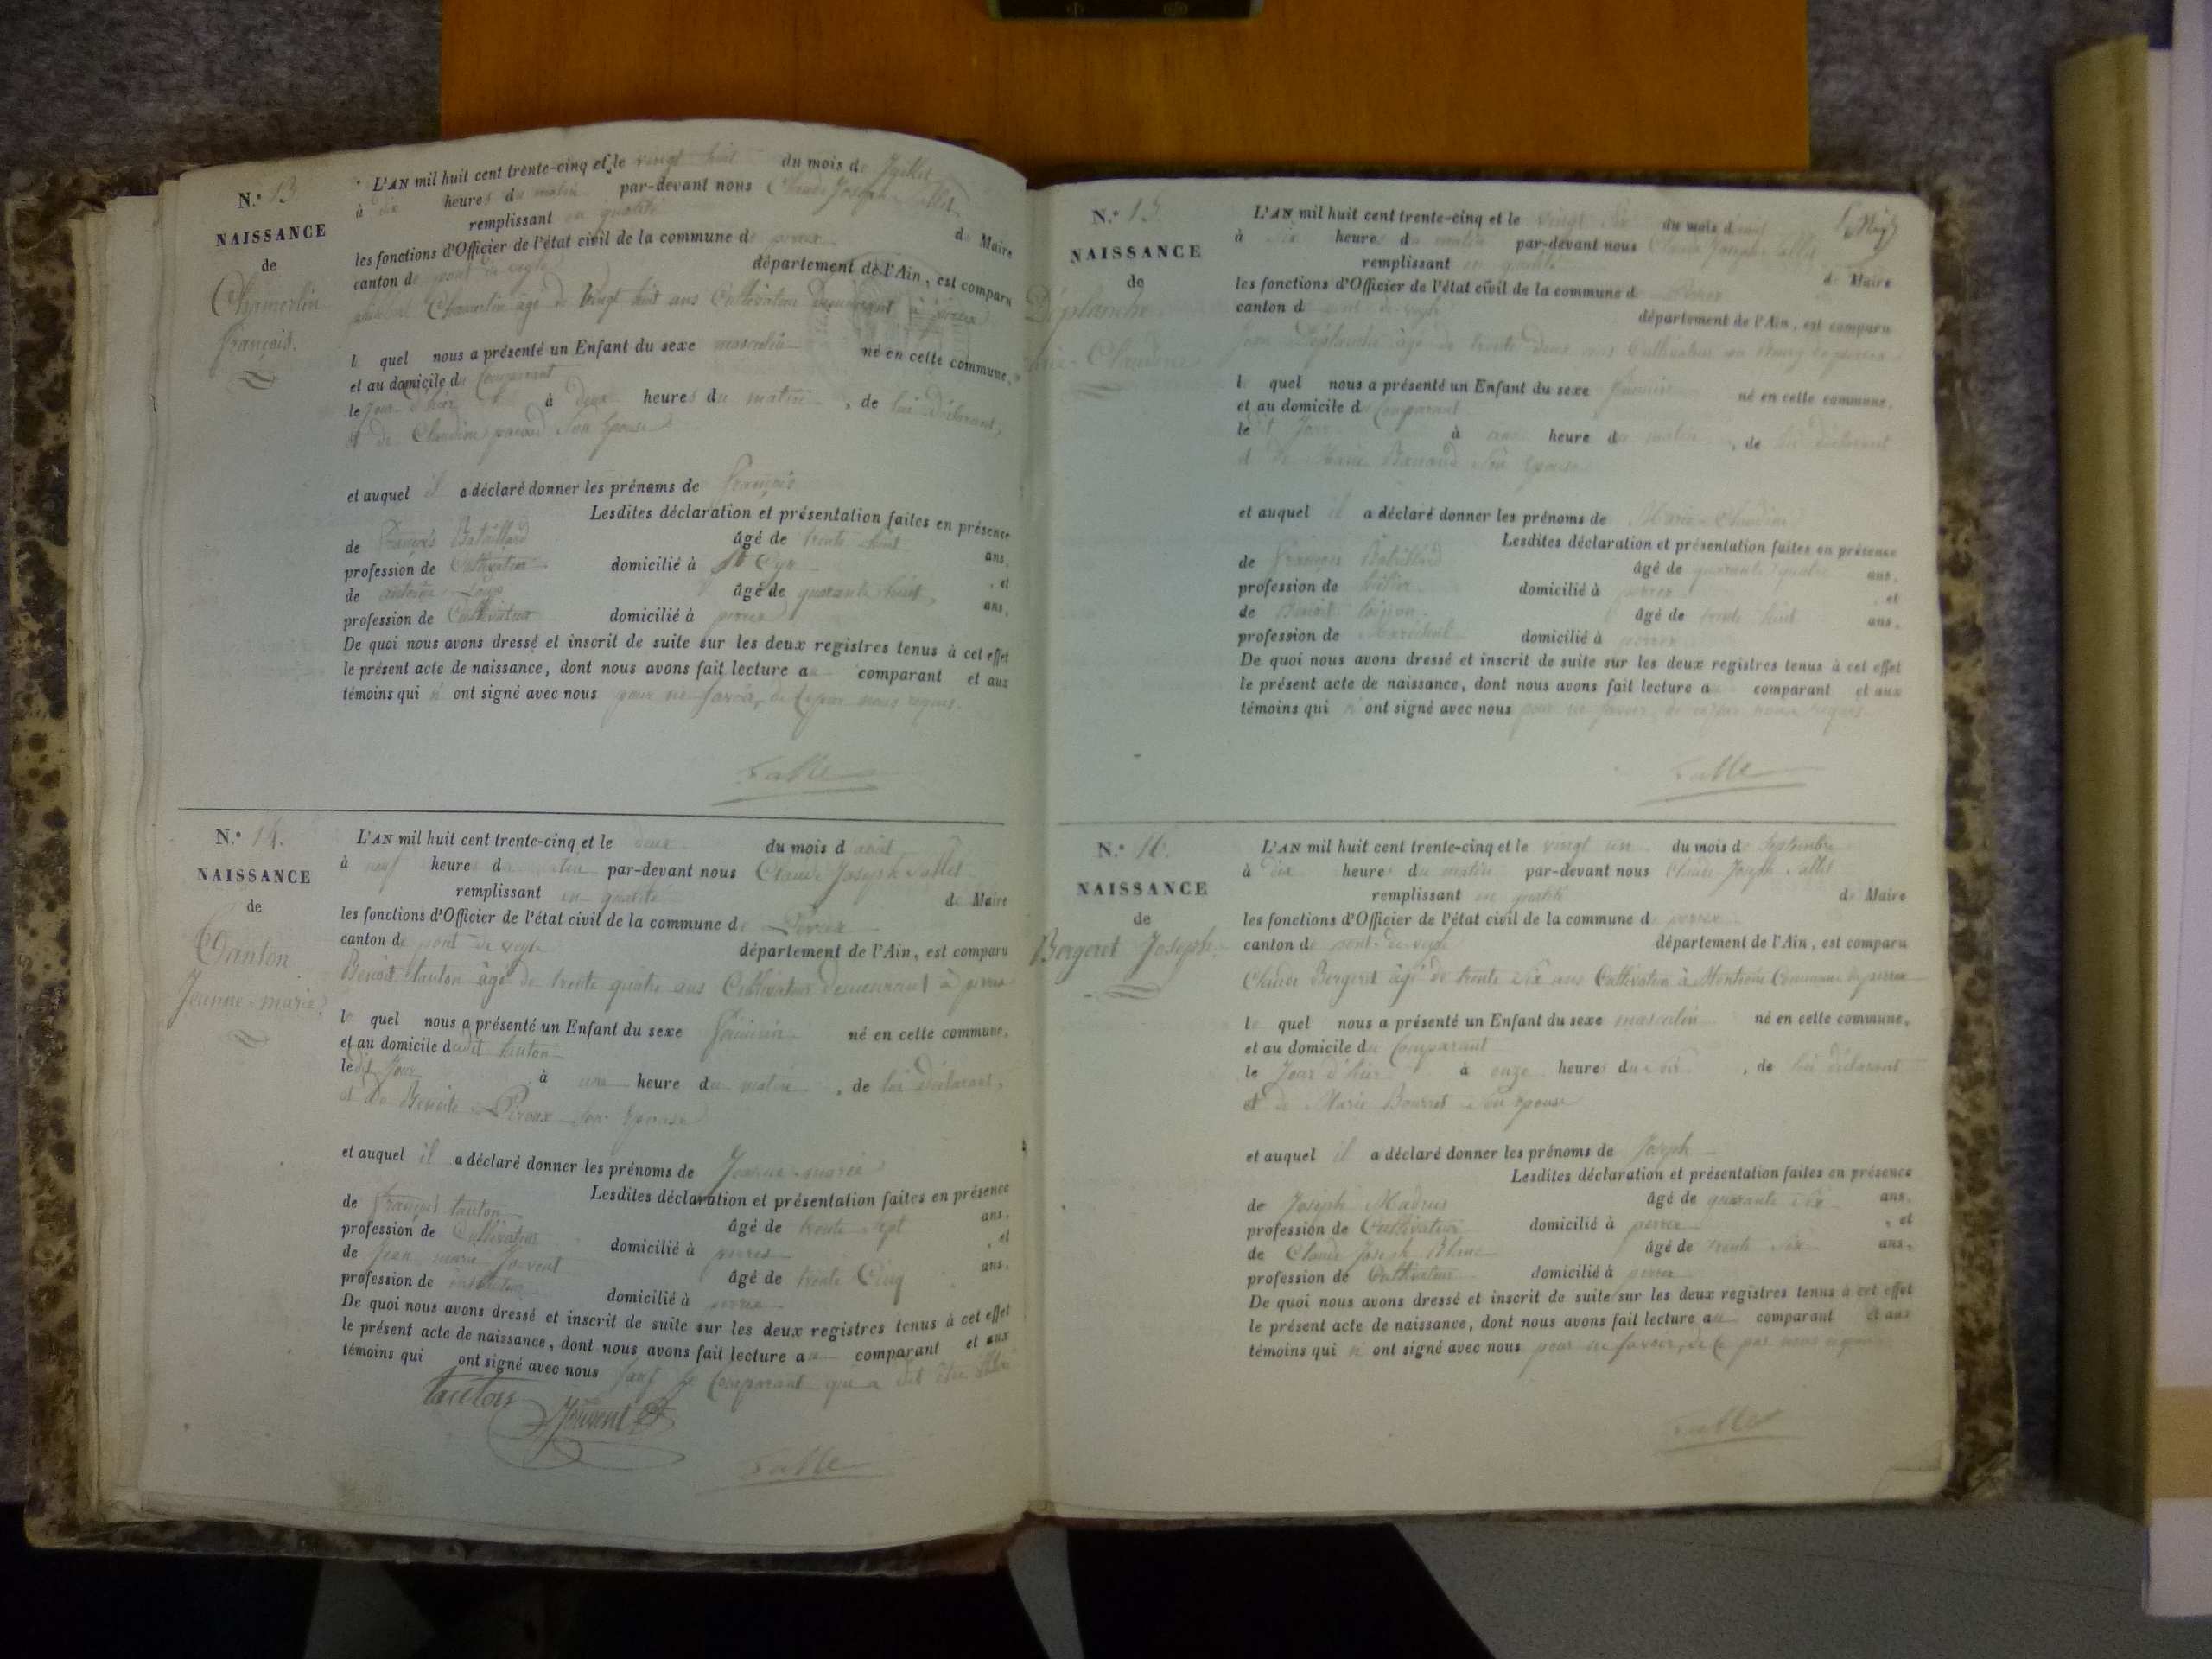 N.° 13.
NAISSANCE
de
Chamerlin
François.
L'AN mil huit cent trente-cinq et le vingt huit du mois de Juillet
à dix heures du matin par-devant nous Claude Joseph
remplissant en qualité de Maire
les fonctions d'Officier de l'état civil de la commune de perrex
canton de pont de veyle département de l'Ain, est comparu
Chamerlin âgé de vingt huit ans Cultivateur demeurant à perrex
lequel nous a présenté un Enfant du sexe masculin né en cette commune,
et au domicile du Comparant
le jour d'hier à deux heures du matin, de lui déclarant,
et de Claudine son épouse
et auquel il a déclaré donner les prénoms de François
Lesdites déclaration et présentation faites en présence
de François Bataillard âgé de trente huit ans,
profession de Cultivateur domicilié à St Cyr, et
de antoine âgé de quarante huit ans,
profession de Cultivateur domicilié à perrex
De quoi nous avons dressé et inscrit de suite sur les deux registres tenus à cet effet
le présent acte de naissance, dont nous avons fait lecture au comparant et aux
témoins qui n'ont signé avec nous pour ne savoir, de ce par nous requis.
N.° 14.
NAISSANCE
de
Tanton
Jeanne-marie
L'AN mil huit cent trente-cinq et le deux du mois d'août
à neuf heures du matin par-devant nous Claude Joseph
remplissant en qualité de Maire
les fonctions d'Officier de l'état civil de la commune de Perrex
canton de pont de veyle département de l'Ain, est comparu
Benoit tanton âgé de trente quatre ans Cultivateur demeurant à perrex
lequel nous a présenté un Enfant du sexe féminin né en cette commune,
et au domicile dudit tanton
ledit Jour à une heure du matin, de lui déclarant,
et de Benoite son épouse
et auquel il a déclaré donner les prénoms de Jeanne-marie
Lesdites déclaration et présentation faites en présence
de François tanton âgé de trente sept ans,
profession de Cultivateur domicilié à perrex, et
de Jean marie Jouvent âgé de trente Cinq ans,
profession de instituteur domicilié à perrex
De quoi nous avons dressé et inscrit de suite sur les deux registres tenus à cet effet
le présent acte de naissance, dont nous avons fait lecture au comparant et aux
témoins qui ont signé avec nous sauf le Comparant qui a dit être
tanton
Jouvent
N.° 15.
NAISSANCE
de
Déplanche
Marie-Claudine
L'AN mil huit cent trente-cinq et le vingt six du mois d'août
à six heures du matin par-devant nous Claude Joseph
remplissant en qualité de Maire
les fonctions d'Officier de l'état civil de la commune de Perrex
canton de pont-de-veyle département de l'Ain, est comparu
Déplanche âgé de trente deux ans Cultivateur au Bourg de perrex
lequel nous a présenté un Enfant du sexe féminin né en cette commune,
et au domicile du Comparant
ledit Jour à une heure du matin, de lui déclarant
et de Marie son épouse
et auquel il a déclaré donner les prénoms de Marie-Claudine
Lesdites déclaration et présentation faites en présence
de François Bataillard âgé de quarante quatre ans,
profession de domicilié à perrex, et
de Benoit âgé de trente huit ans,
profession de Maréchal domicilié à perrex
De quoi nous avons dressé et inscrit de suite sur les deux registres tenus à cet effet
le présent acte de naissance, dont nous avons fait lecture au comparant et aux
témoins qui n'ont signé avec nous pour ne savoir, de ce par nous requis.
N.° 16.
NAISSANCE
de
Bergeret Joseph.
L'AN mil huit cent trente-cinq et le vingt un du mois de Septembre
à dix heures du matin par-devant nous Claude Joseph
remplissant en qualité de Maire
les fonctions d'Officier de l'état civil de la commune de perrex
canton de pont-de-veyle département de l'Ain, est comparu
Claude Bergeret âgé de trente six ans Cultivateur à Commune de perrex
lequel nous a présenté un Enfant du sexe masculin né en cette commune,
et au domicile du Comparant
le Jour d'hier à onze heures du soir, de lui déclarant
et de Marie Bourret son épouse
et auquel il a déclaré donner les prénoms de Joseph
Lesdites déclaration et présentation faites en présence
de Joseph âgé de quarante six ans,
profession de Cultivateur domicilié à perrex, et
de Claude Joseph Blanc âgé de trente six ans,
profession de Cultivateur domicilié à perrex
De quoi nous avons dressé et inscrit de suite sur les deux registres tenus à cet effet
le présent acte de naissance, dont nous avons fait lecture au comparant et aux
témoins qui n'ont signé avec nous pour ne savoir, de ce par nous requis